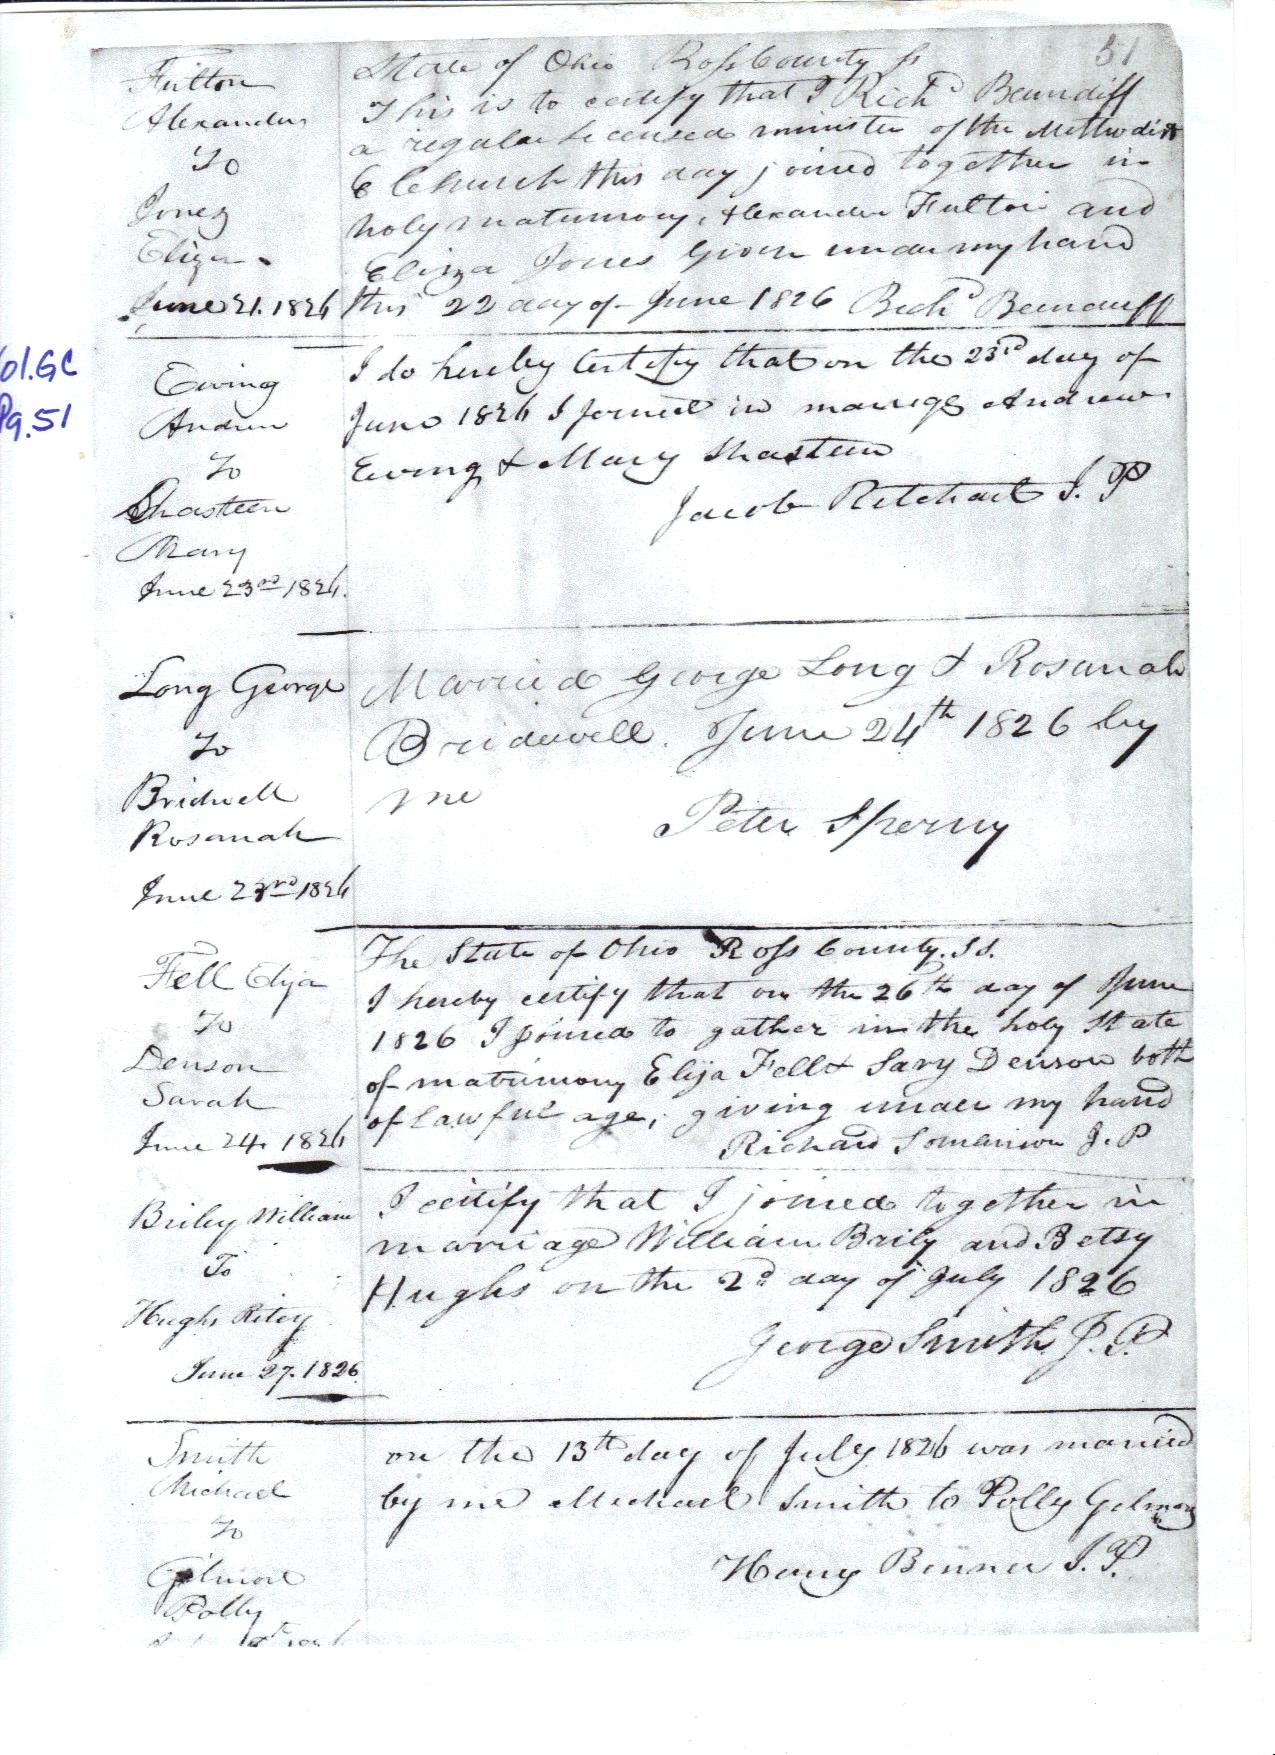 51
Fulton
Alexander
To
Jones
Eliza
June 21. 1826
State of Ohio Ross County ss
This is to certify that I Richd
a regular licensed minister of the Methodist
E Church this day joined together in
holy matrimony, Alexander Fulton and
Eliza Jones Given under my hand
this 22 day of June 1826 Richd
Vol.GC
Pg.51
Ewing
Andrew
To
Shasteen
Mary
June 23rd 1826.
I do hereby Certify that on the 23rd day of
June 1826 I joined in marriage Andrew
Ewing & Mary Shasteen
Jacob J. P
Long George
To
Bridwell
Rosanah
June 23rd 1826
Married George Long & Rosanah
Bridewell. June 24th 1826 by
me
Peter Sperry
Fell Elija
To
Denson
Sarah
June 24. 1826
The State of Ohio Ross County. Ss.
I hereby certify that on the 26th day of June
1826 I joined to gather in the holy State
of matrimony Elija Fell & Sary Denson both
of lawful age, giving under my hand
Richard J. P
Briley William
To
Hughs
June 27. 1826.
I certify that I joined together in
marriage William Braily and Betsy
Hughs on the 2d day of July 1826
George Smith J. P.
Smith
Michael
To
Gilmore
Polly
on the 13th day of July 1826 was married
by me Michael Smith to Polly
Henry Benner J. P.